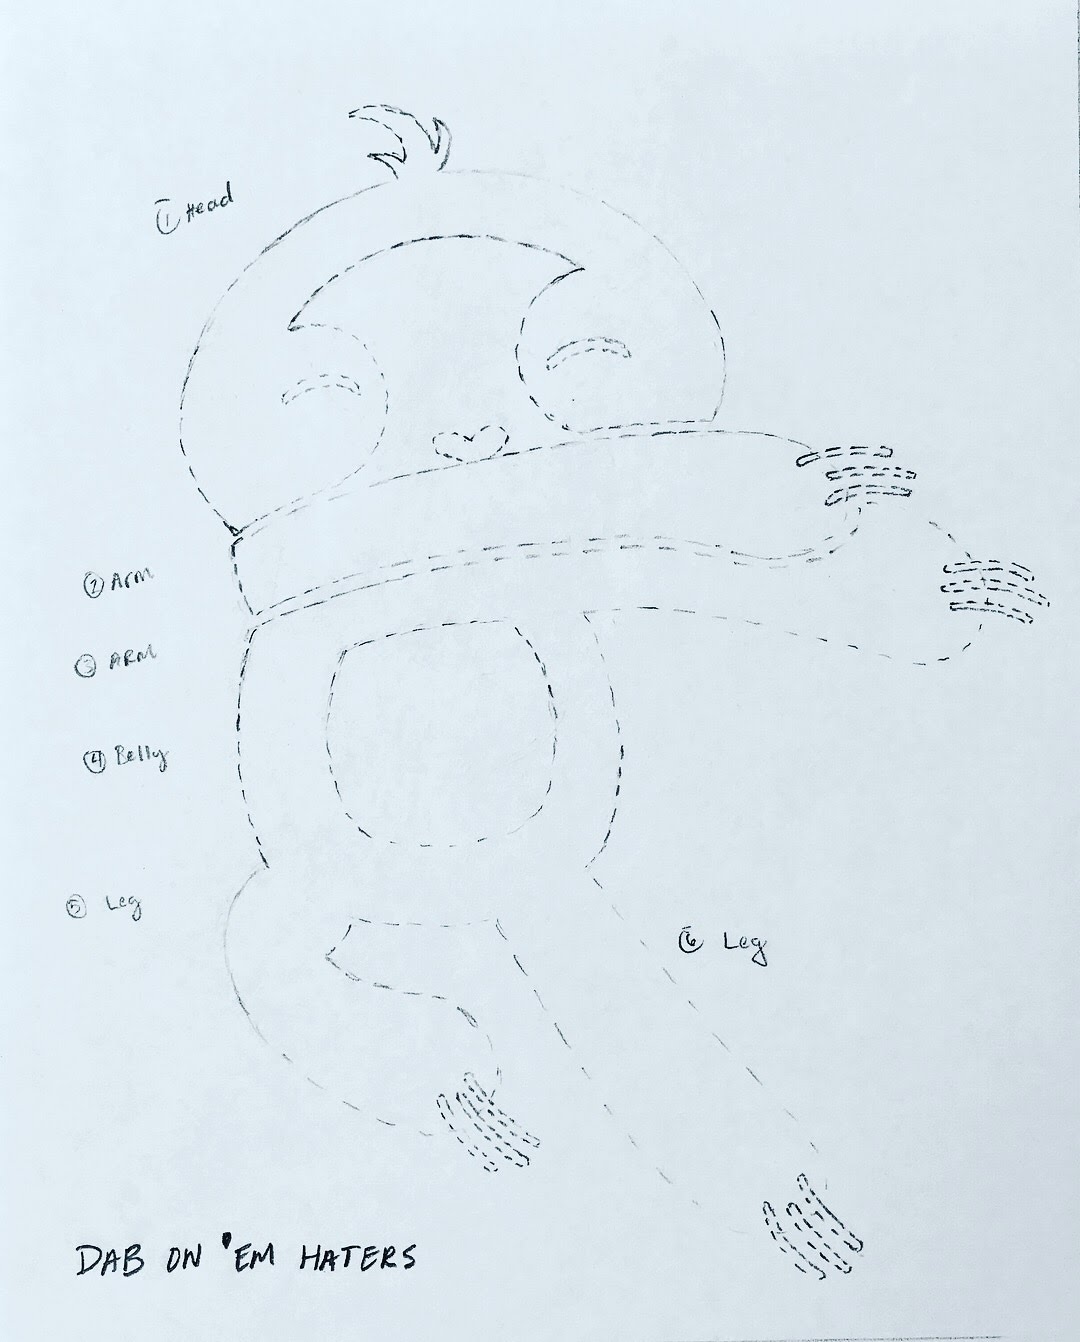 ① Head
② Arm
③ ARM
④ Belly
⑤ Leg
⑥ Leg
DAB ON 'EM HATERS